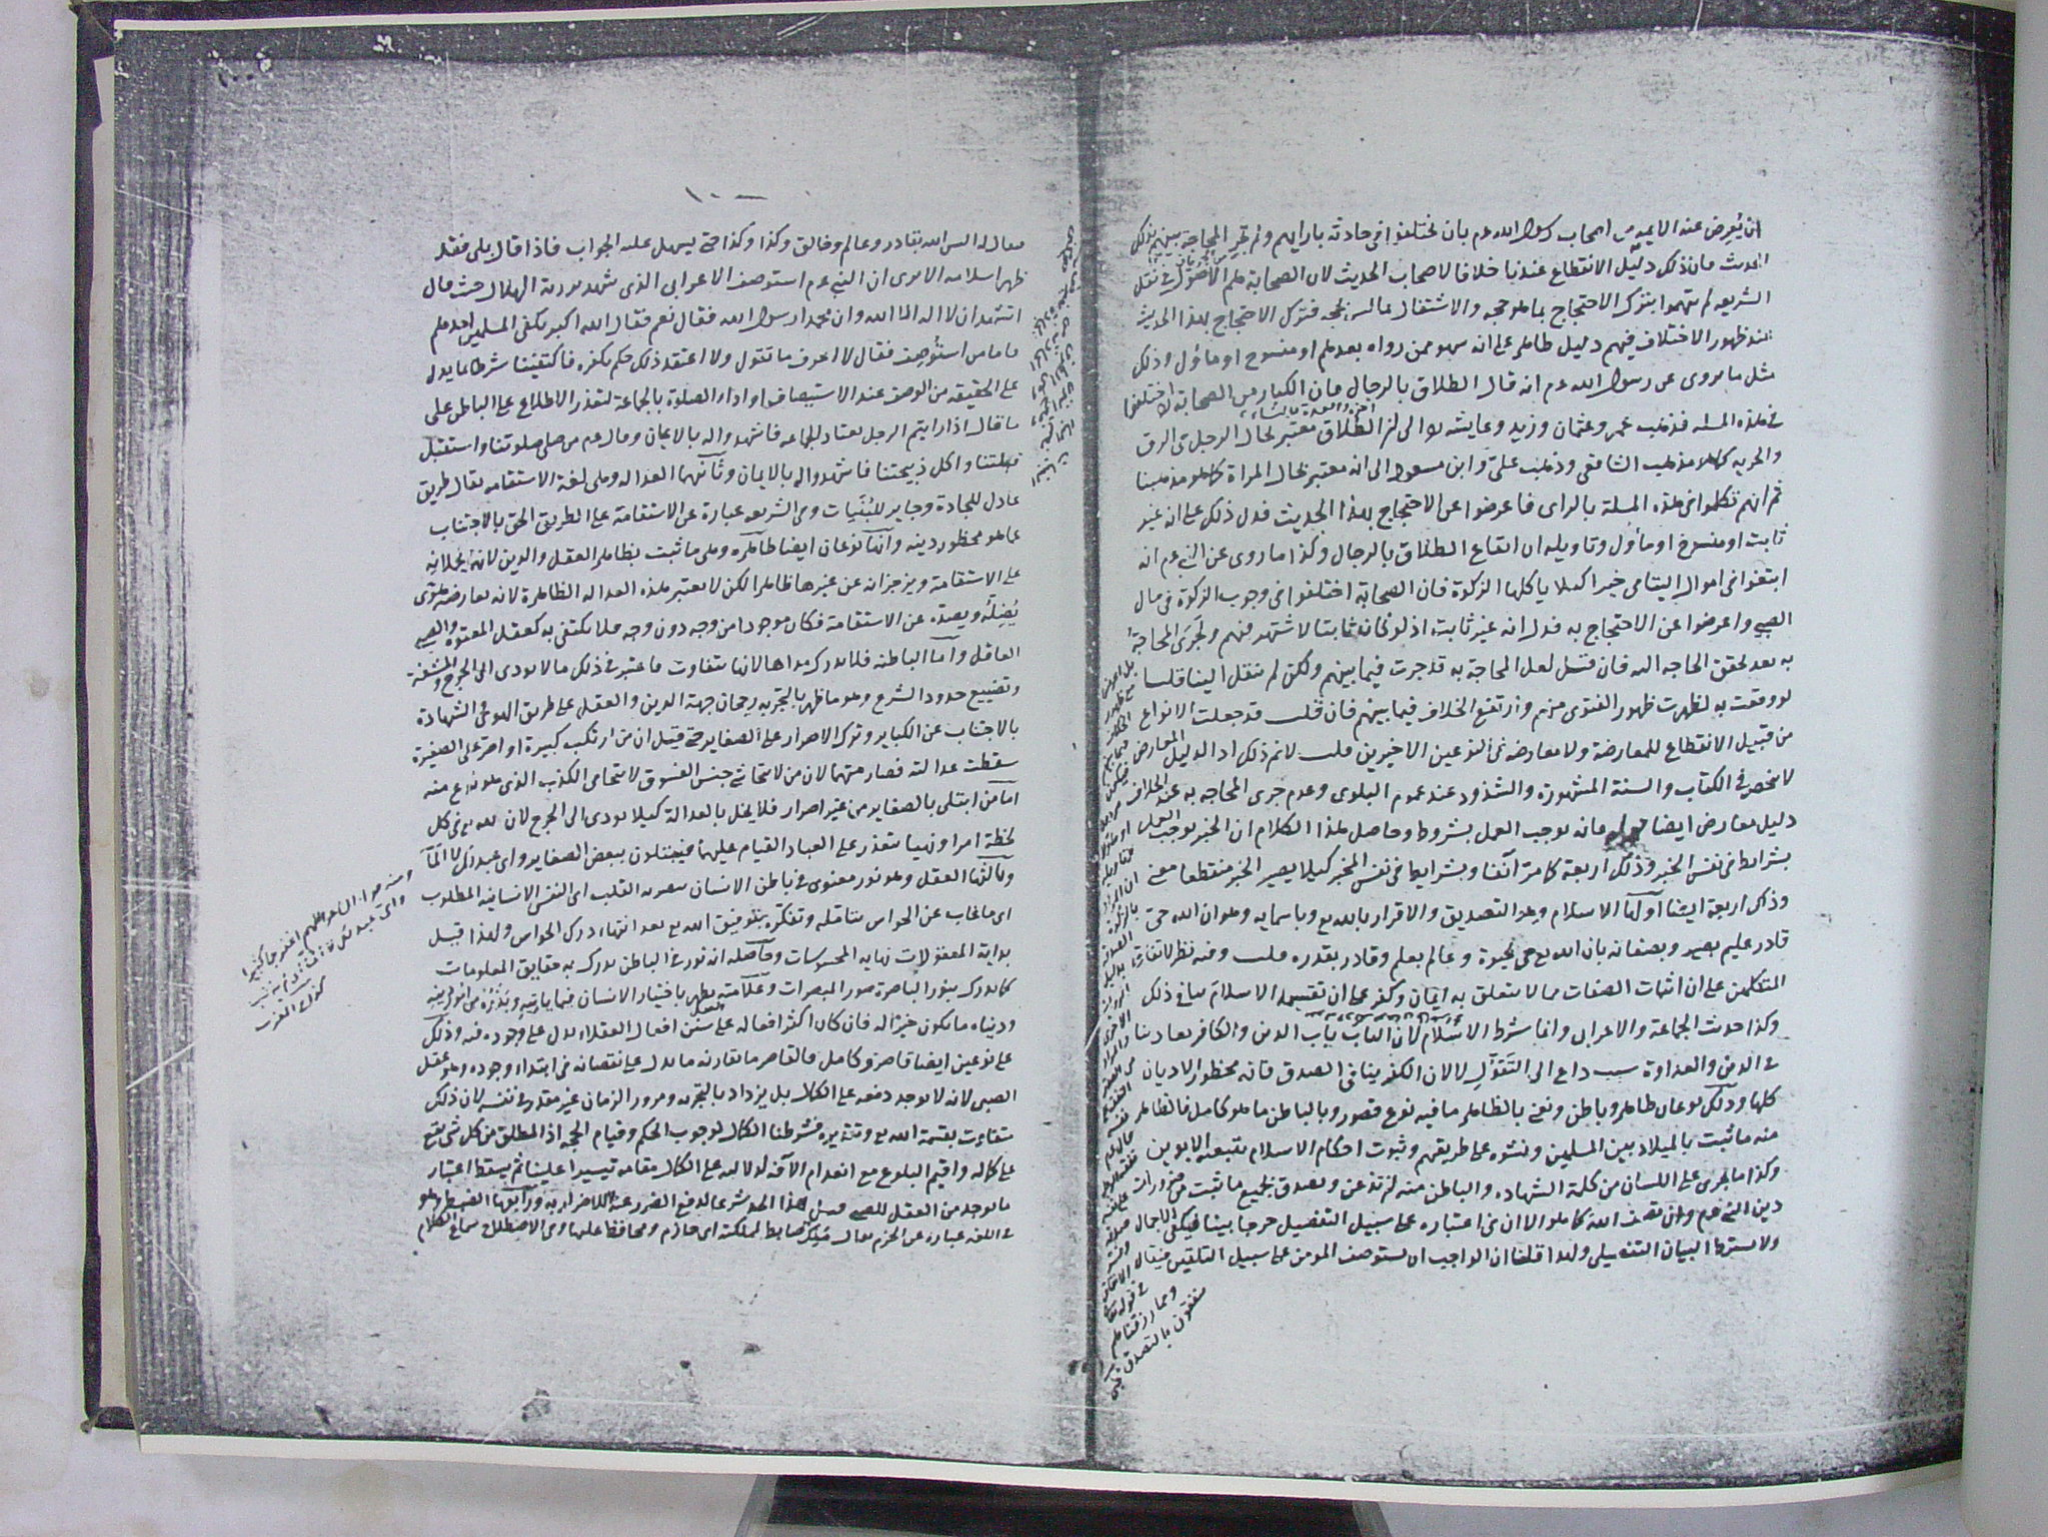 ان يُعرض عنه الايمه من اصحاب رسول الله عم بان يختلفوا في حادثة بارايهم ولم تجر المحاجة بينهم بذلك
الحديث فان ذلك دليل الانقطاع عندنا خلافا لاصحاب الحديث لان الصحابة هم الاصول في نقل
الشريعه لم يتهموا بترك الاحتجاج بما هو حجه والاشتغال بما ليس بحجه فترك الاحتجاج بهذا الحديث
عند ظهور الاختلاف فيهم دليل ظاهر على انه سهو ممن رواه بعدهم او منسوخ او ماؤل وذلك
مثل ما يروى عن رسول الله عم انه قال الطلاق بالرجال فان الكبار من الصحابة اختلفوا
في هذه المسله فذهب عمر وعثمان وزيد وعايشه الى ان الطلاق معتبر بحال الرجل في الرق
والحريه كما هو مذهب الشافعي وذهب علي وابن مسعود الى انه معتبر بحال المراة كما هو مذهبنا
ثم انهم تكلموا في هذه المسلة بالراى فاعرضوا عن الاحتجاج بهذا الحديث فدل ذلك على انه غير
ثابت او منسوخ او مأول وتاويله ان ايقاع الطلاق بالرجال وكذا ما روى عن النبي عم انه
ابتغوا في اموال اليتامى خيرا كيلا ياكلها الزكوة فان الصحابة اختلفوا في وجوب الزكوة في مال
الصبي واعرضوا عن الاحتجاج به فدل انه غير ثابت اذ لو كان ثابتا لاشتهر فيهم وتجرى المحاجة
به بعد تحقق الحاجه اليه فان قيل لعل المحاجة به قد جرت فيما بينهم ولكن لم ينقل الينا قلنا
لو وقعت به لظهرت ظهور الفتوى منهم وارتفع الخلاف فيما بينهم فان قلت قد جعلت الانواع
من قبيل الانقطاع للمعارضة ولا معارضه في النوعين الاخيرين قلت لانم ذلك اذ الدليل المعارض
لا ينحصر في الكتاب والسنة المشهورة والشذوذ عند عموم البلوى وعدم جرى المحاجه به عند الخلاف
دليل معارض ايضا فانه يوجب العمل بشروط وحاصل هذا الكلام ان الخبر يوجب العمل
بشرايط في نفس الخبر وذلك اربعة كما مر آنفا وبشرايط في نفس المخبر كيلا يصير الخبر منقطعا معنى
وذلك اربعة ايضا اولها الاسلام وهو التصديق والاقرار بالله تع وباسمايه وهو ان الله حى
قادر عليم بصير وبصفاته بان الله تع حى بحيوة وعالم بعلم وقادر بقدره قلت وفيه نظر لاتفاق
المتكلمين على ان اثبات الصفات مما لا يتعلق به ايمان وكفر على ان تقسيمه الاسلام ينافي ذلك
وكذا حديث الجماعة والاعرابى وانما شرط الاسلام لان الباب باب الدين والكافر يعادينا
في الدين والعداوة سبب داع الى التقول لا لان الكفر ينافي الصدق فانه محظور الاديان
كلها وذلك نوعان ظاهر وباطن ونعني بالظاهر ما فيه نوع قصور وبالباطن ما هو كامل فالظاهر
منه ما ثبت بالميلاد بين المسلمين ونشوه على طريقهم وثبوت احكام الاسلام بتبعية الابوين
وكذا ما يجرى على اللسان من كلمة الشهاده والباطن منه ان تذعن وتصدق بجميع ما ثبت من ضرورات
دين النبي عم وان تصف الله كما هو الا ان في اعتباره على سبيل التفصيل حرجا بينا فيكفي الاجمال
ولا يشترط البيان التفصيلى ولهذا قلنا ان الواجب ان يستوصف المومن على سبيل التلقين فيقال
ومما رزقناهم
ينفقون بالتصدق
١٠٠
فيقال له اليس الله بقادر وعالم وخالق وكذا وكذا حتى يسهل عليه الجواب فاذا قال بلى فقد
ظهر اسلامه الا يرى ان النبي عم استوصف الاعرابى الذى شهد برؤية الهلال حيث قال
اتشهد ان لا اله الا الله وان محمدا رسول الله فقال نعم فقال الله اكبر يكفي المسلمين احدهم
فاما من استوصف فقال لا اعرف ما تقول ولا اعتقد ذلك حكم بكفره فاكتفينا شرطا بما يدل
على الحقيقه من الوصف عند الاستيصاف او اداء الصلوة بالجماعة لتعذر الاطلاع على الباطن على
ما قال اذا رايتم الرجل يعتاد الجماعه فاشهدوا له بالايمان وقال عم من صلى صلوتنا واستقبل
قبلتنا واكل ذبيحتنا فاشهدوا له بالايمان وثانيها العداله وهى لغة الاستقامه يقال طريق
عادل للجادة وجاير للبنيات وفي الشريعه عبارة عن الاستقامة على الطريق الحق بالاجتناب
عما هو محظور دينه وانها نوعان ايضا ظاهره وهى ما ثبت بظاهر العقل والدين لانهما يحملانه
على الاستقامة ويزجرانه عن غيرها ظاهرا لكن لا يعتبر هذه العداله الظاهرة لانه يعارضه هوى
يضله ويصده عن الاستقامة فكان موجودا من وجه دون وجه فلا يكتفى به كعقل المعتوه والصبي
العاقل واما الباطنه فلا يدرك مداها لانها تتفاوت فاعتبر في ذلك ما لا يودى الى الحرج والمشقة
وتضييع حدود الشرع وهو ما ظهر بالتجربه رجحان جهة الدين والعقل على طريق الهوى والشهادة
بالاجتناب عن الكباير وترك الاصرار على الصغاير حتى قيل ان من ارتكب كبيرة او اصر على الصغيرة
سقطت عدالته فصار متهما لان من لا يتحاشى جنس الفسوق لا يتحامى الكذب الذى هو نوع منه
اما من ابتلى بالصغاير من غير اصرار فلا يخل بالعدالة كيلا يودى الى الحرج لان لله تع في كل
لحظة امرا ونهيا يتعذر على العباد القيام عليهما فيبتلون ببعض الصغاير واى عبد لك لا الما
وثالثها العقل وهو نور معنوى في باطن الانسان يبصر به القلب اى النفس الانسانية المطلوب
اى ما غاب عن الحواس بتامله وتفكره بتوفيق الله تع بعد انتهاء درك الحواس ولهذا قيل
بداية المعقولات نهاية المحسوسات وحاصله انه نور في الباطن يدرك به حقايق المعلومات
كما يدرك بنور الباصرة صور المبصرات وعلامته يظهر باختيار الانسان فيما ياتيه ويذره من امور دينه
ودنياه ما يكون خيرا له فان كان اكثر افعاله على سنن افعال العقلاء يدل على وجوده فيه وذلك
على نوعين ايضا قاصر وكامل فالقاصر ما يقارنه ما يدل على نقصانه في ابتداء وجوده وهو عقل
الصبي لانه لا يوجد دفعه على الكمال بل يزداد بالتجربه ومرور الزمان غير مقدر في نفسه لان ذلك
متفاوت بقسمة الله تع وتقديره فشرطنا الكمال لوجوب الحكم وقيام الحجه اذ المطلق من كل شى يقع
على كماله واقيم البلوغ مع انعدام الآفه لدلالته على الكمال مقامه تيسيرا علينا ثم يسقط اعتبار
ما يوجد من العقل للصبي قبل هذا الحد شرعا لدفع الضرر عنه لا للاضرار به ورابعها الضبط وهو
في اللغه عبارة عن الحزم يقال ملك ضابط لمملكته اى حازم ومحافظ عليها وفي الاصطلاح سماع الكلام